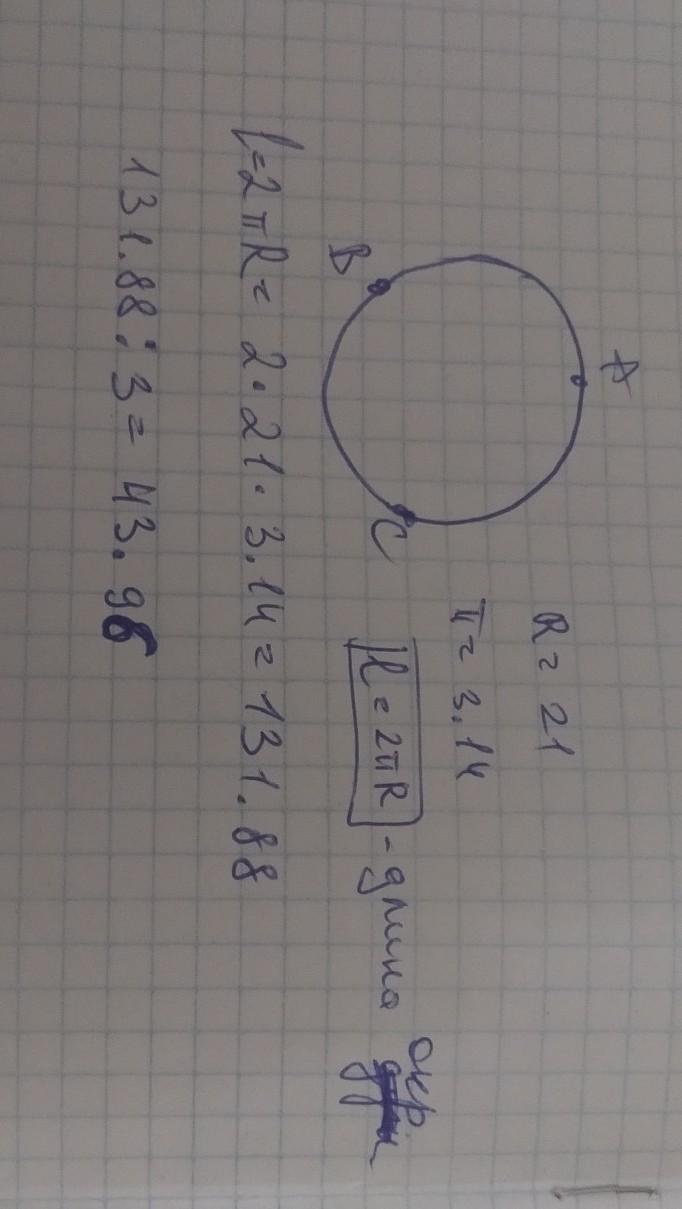 A
R = 21
π = 3.14
B
C
l = 2πR - длина окр
l = 2πR = 2·21·3.14 = 131.88
131.88 : 3 = 43.96